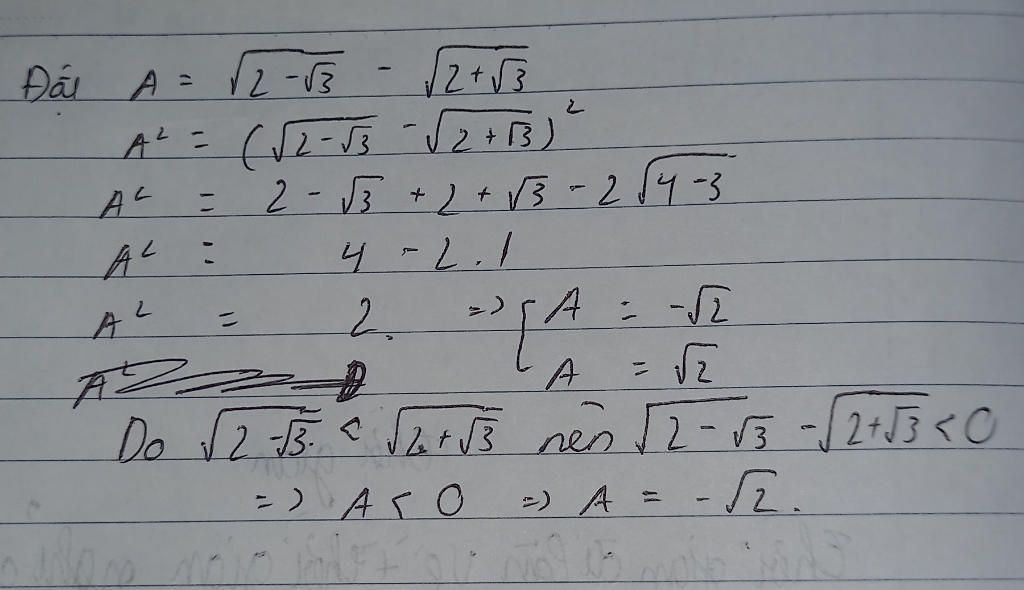 Đặt A = √(2 - √3) - √(2 + √3)
A² = (√(2 - √3) - √(2 + √3))²
A² = 2 - √3 + 2 + √3 - 2√(4 - 3)
A² = 4 - 2 . 1
A² = 2. => [ A = -√2
A = √2
Do √(2 - √3) < √(2 + √3) nên √(2 - √3) - √(2 + √3) < 0
=> A < 0 => A = -√2.